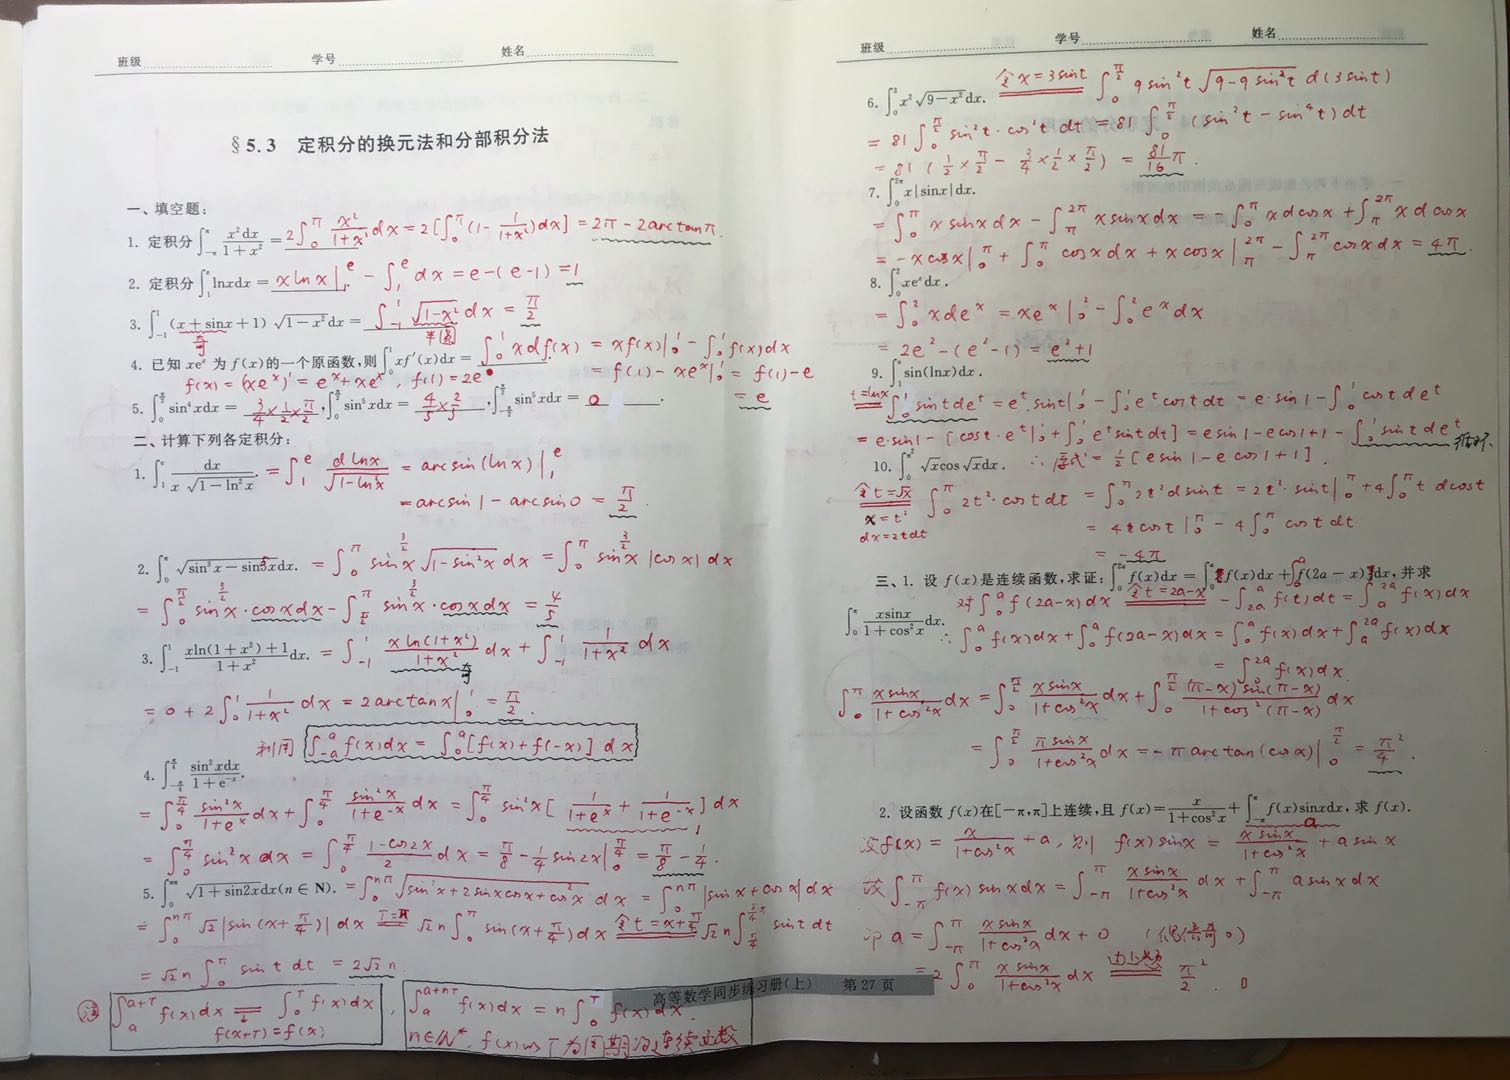 班级 学号 姓名
§5.3 定积分的换元法和分部积分法
一、填空题:
1. 定积分∫_{-π}^{π} x²dx/(1+x²) = 2∫_0^π x²/(1+x²) dx = 2[∫_0^π (1 - 1/(1+x²))dx] = 2π - 2arctanπ.
2. 定积分∫_1^e lnxdx = xlnx|_1^e - ∫_1^e dx = e-(e-1) = 1
3. ∫_{-1}^1 (x+sinx+1)√(1-x²)dx = ∫_{-1}^1 √(1-x²) dx = π/2
奇 半圆
4. 已知 xe^x 为 f(x)的一个原函数,则∫_0^1 xf′(x)dx = ∫_0^1 xdf(x) = xf(x)|_0^1 - ∫_0^1 f(x)dx
f(x) = (xe^x)′ = e^x+xe^x, f(1) = 2e = f(1) - xe^x|_0^1 = f(1)-e
5. ∫_0^{π/2} sin⁴xdx = 3/4×1/2×π/2, ∫_0^{π/2} sin⁵xdx = 4/5×2/3, ∫_{-π/2}^{π/2} sin⁵xdx = 0. = e
二、计算下列各定积分:
1. ∫_1^e dx/(x√(1-ln²x)). = ∫_1^e dlnx/√(1-ln²x) = arcsin(lnx)|_1^e
= arcsin1 - arcsin0 = π/2.
2. ∫_0^π √(sin³x-sin⁵x)dx. = ∫_0^π sin^{3/2}x √(1-sin²x) dx = ∫_0^π sin^{3/2}x |cosx| dx
= ∫_0^{π/2} sin^{3/2}x·cosxdx - ∫_{π/2}^π sin^{3/2}x·cosxdx = 4/5
3. ∫_{-1}^1 (xln(1+x²)+1)/(1+x²) dx. = ∫_{-1}^1 xln(1+x²)/(1+x²) dx + ∫_{-1}^1 1/(1+x²) dx
奇
= 0 + 2∫_0^1 1/(1+x²) dx = 2arctanx|_0^1 = π/2.
利用 ∫_{-a}^a f(x)dx = ∫_0^a [f(x)+f(-x)] dx
4. ∫_{-π/4}^{π/4} sin²xdx/(1+e^{-x}).
= ∫_0^{π/4} sin²x/(1+e^x) dx + ∫_0^{π/4} sin²x/(1+e^{-x}) dx = ∫_0^{π/4} sin²x[1/(1+e^x) + 1/(1+e^{-x})] dx
1
= ∫_0^{π/4} sin²x dx = ∫_0^{π/4} (1-cos2x)/2 dx = π/8 - 1/4 sin2x|_0^{π/4} = π/8 - 1/4.
5. ∫_0^{nπ} √(1+sin2x)dx(n∈N). = ∫_0^{nπ} √(sin²x+2sinxcosx+cos²x) dx = ∫_0^{nπ} |sinx+cosx| dx
= ∫_0^{nπ} √2|sin(x+π/4)| dx T=π √2n∫_0^π sin(x+π/4)dx 令t=x+π/4 √2n∫_{π/4}^{5π/4} sintdt
= √2n∫_0^π sint dt = 2√2n.
注 ∫_a^{a+T} f(x)dx = ∫_0^T f(x)dx , ∫_a^{a+nT} f(x)dx = n∫_0^T f(x)dx.
f(x+T)=f(x) n∈N*, f(x)以T为周期的连续函数
高等数学同步练习册(上) 第27页
班级 学号 姓名
6. ∫_0^3 x²√(9-x²)dx. 令x=3sint ∫_0^{π/2} 9sin²t √(9-9sin²t) d(3sint)
= 81∫_0^{π/2} sin²t·cos²t dt = 81∫_0^{π/2} (sin²t-sin⁴t)dt
= 81(1/2×π/2 - 3/4×1/2×π/2) = 81/16 π.
7. ∫_0^{2π} x|sinx|dx.
= ∫_0^π xsinxdx - ∫_π^{2π} xsinxdx = -∫_0^π xdcosx + ∫_π^{2π} xdcosx
= -xcosx|_0^π + ∫_0^π cosxdx + xcosx|_π^{2π} - ∫_π^{2π} cosxdx = 4π.
8. ∫_0^2 xe^xdx.
= ∫_0^2 xde^x = xe^x|_0^2 - ∫_0^2 e^xdx
= 2e²-(e²-1) = e²+1
9. ∫_1^e sin(lnx)dx.
t=lnx ∫_0^1 sintde^t = e^t·sint|_0^1 - ∫_0^1 e^tcostdt = e·sin1 - ∫_0^1 costde^t
= e·sin1 - [cost·e^t|_0^1 + ∫_0^1 e^tsintdt] = esin1-ecos1+1 - ∫_0^1 sintde^t 循环
10. ∫_0^{π²} √xcos√xdx. ∴原式 = 1/2[esin1-ecos1+1].
令t=√x ∫_0^π 2t²·costdt = ∫_0^π 2t²dsint = 2t²·sint|_0^π + 4∫_0^π t dcost
x=t²
dx=2tdt = 4tcost|_0^π - 4∫_0^π costdt
= -4π
三、1. 设 f(x)是连续函数,求证:∫_0^{2a} f(x)dx = ∫_0^a f(x)dx + ∫_0^a f(2a-x)dx,并求
∫_0^π xsinx/(1+cos²x) dx. 对∫_0^a f(2a-x)dx 令t=2a-x -∫_{2a}^a f(t)dt = ∫_a^{2a} f(x)dx
∴ ∫_0^a f(x)dx + ∫_0^a f(2a-x)dx = ∫_0^a f(x)dx + ∫_a^{2a} f(x)dx
= ∫_0^{2a} f(x)dx.
∫_0^π xsinx/(1+cos²x) dx = ∫_0^{π/2} xsinx/(1+cos²x) dx + ∫_0^{π/2} (π-x)sin(π-x)/(1+cos²(π-x)) dx
= ∫_0^{π/2} πsinx/(1+cos²x) dx = -πarctan(cosx)|_0^{π/2} = π²/4.
2. 设函数 f(x)在[-π,π]上连续,且 f(x) = x/(1+cos²x) + ∫_{-π}^π f(x)sinxdx,求 f(x).
a
设f(x) = x/(1+cos²x) + a, 则 f(x)sinx = xsinx/(1+cos²x) + asinx
故∫_{-π}^π f(x)sinxdx = ∫_{-π}^π xsinx/(1+cos²x) dx + ∫_{-π}^π asinxdx
即 a = ∫_{-π}^π xsinx/(1+cos²x) dx + 0 (偶倍奇0)
= 2∫_0^π xsinx/(1+cos²x) dx 由上题 π²/2.